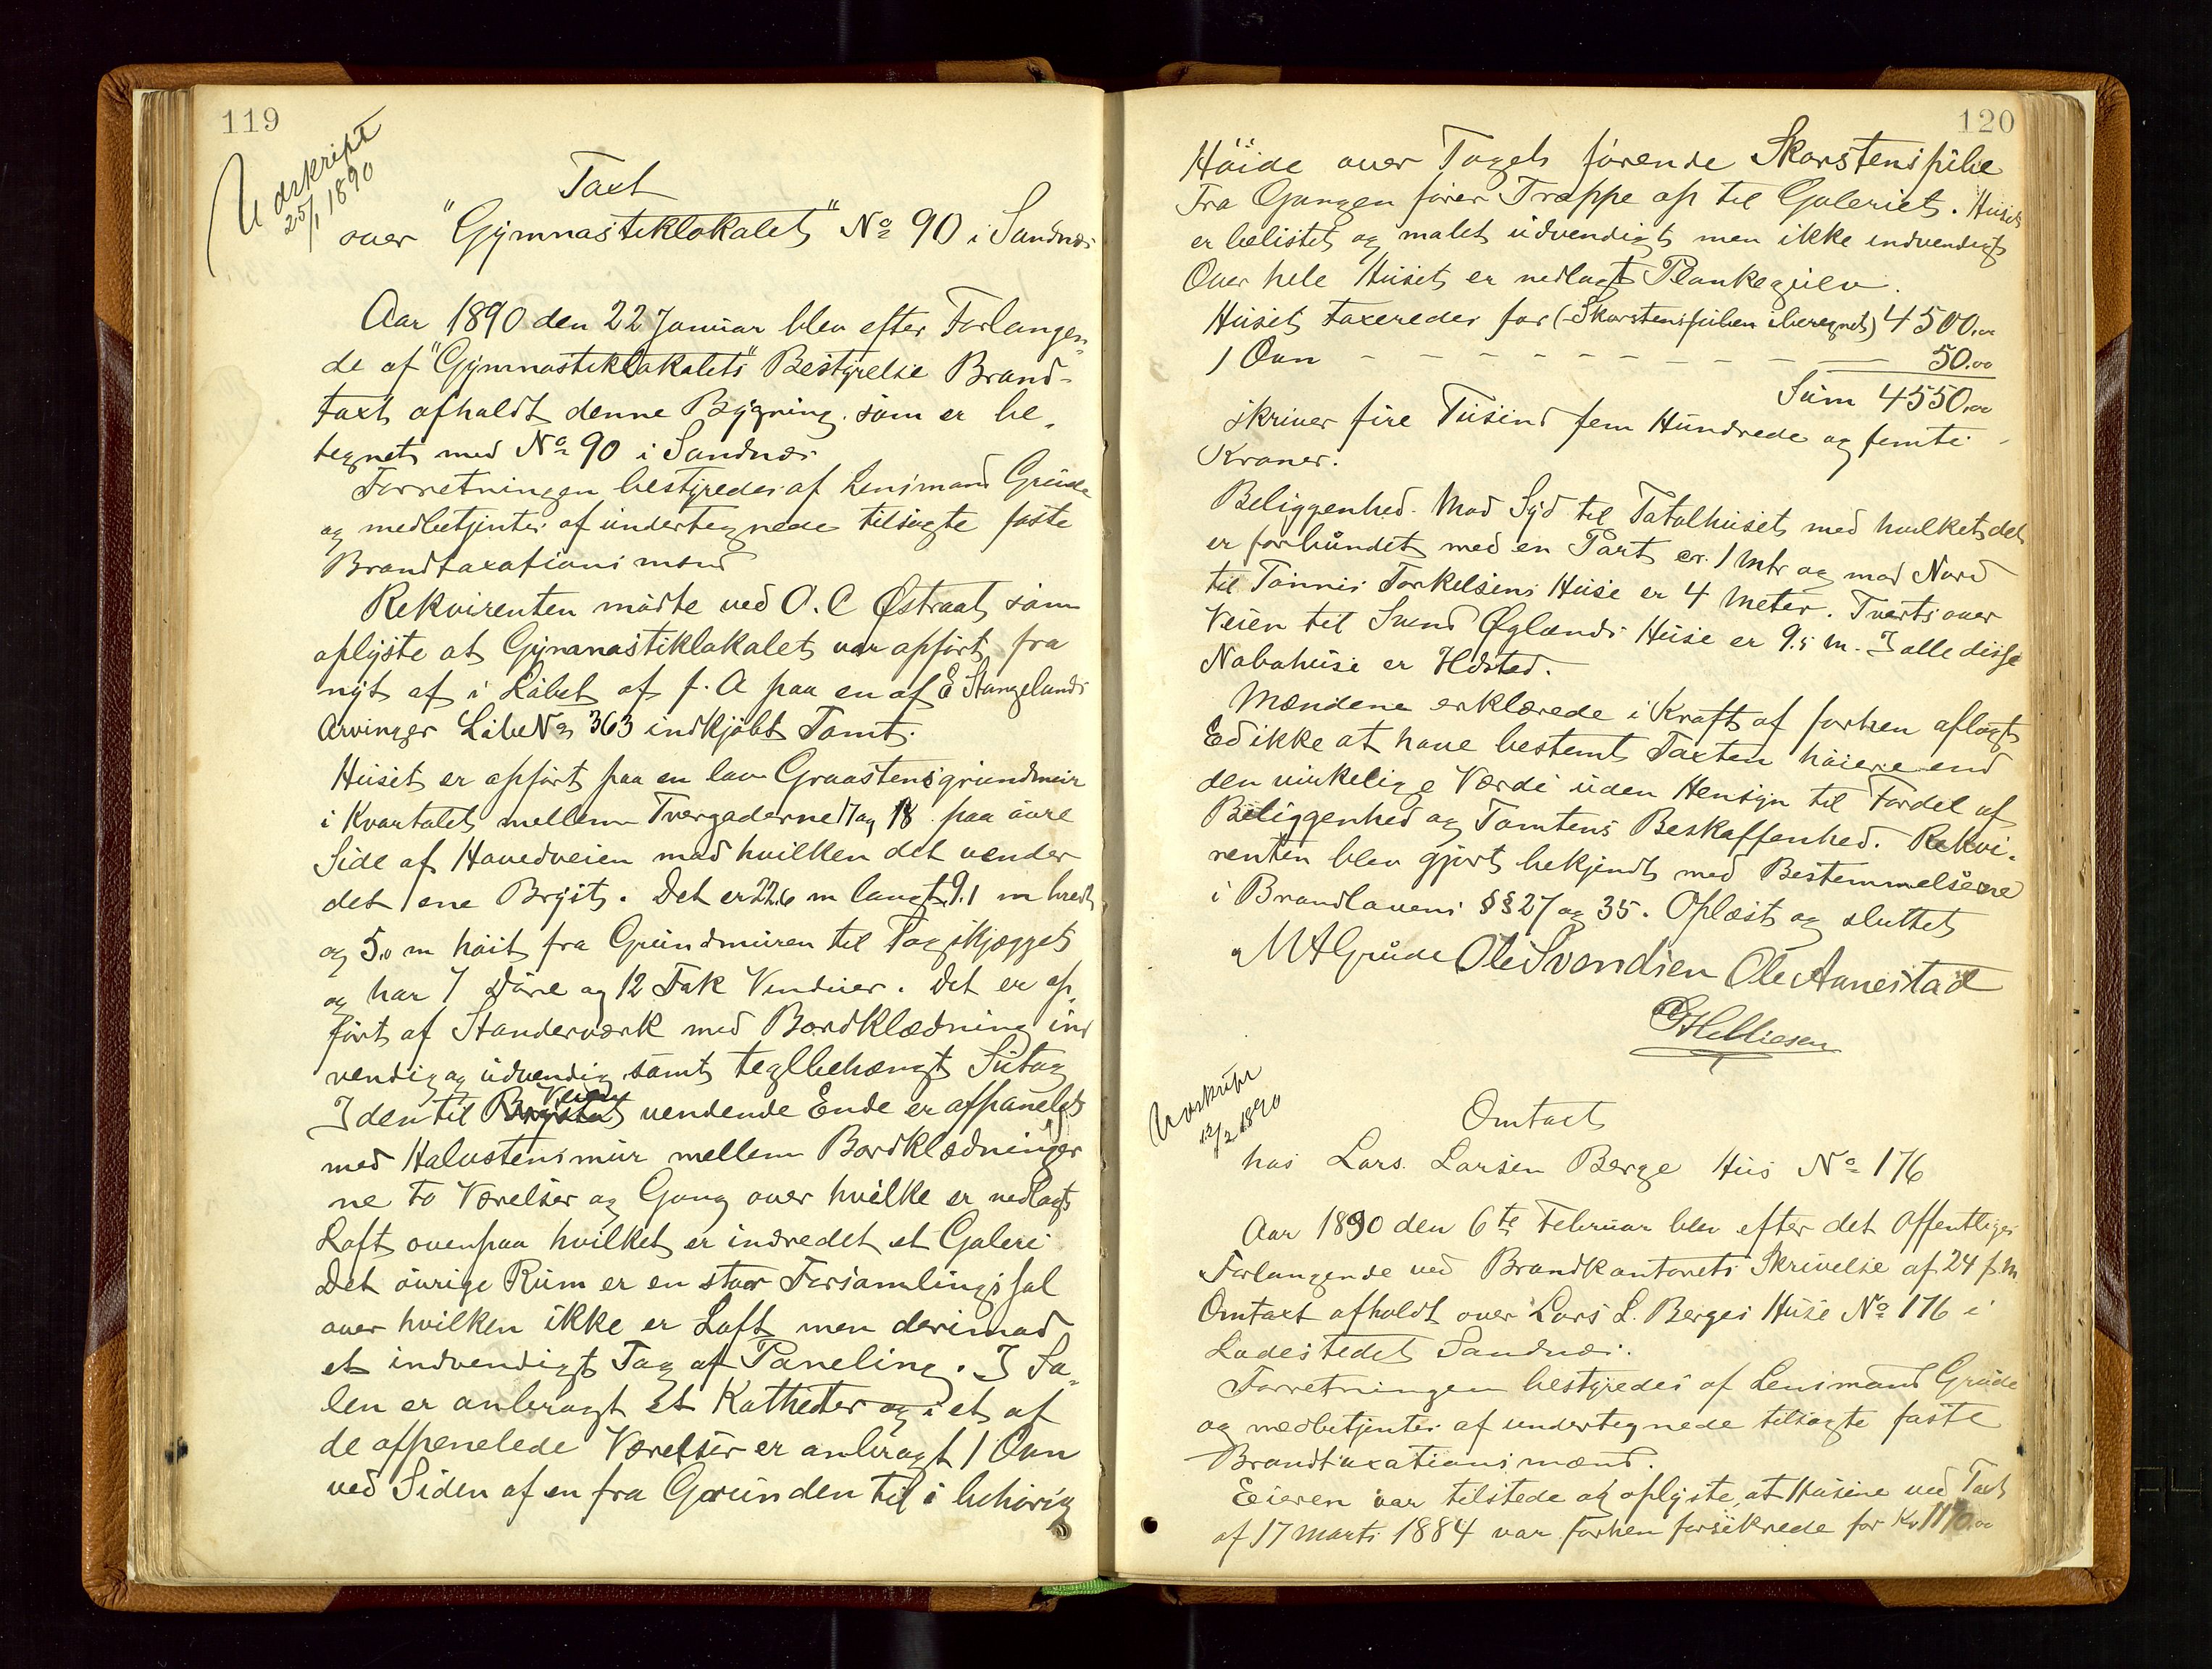 119
Udskript
25/1 1890
Taxt
over "Gymnastiklokalet" No 90 i Sandnæs
Aar 1890 den 22 Januar blev efter Forlangen-
de af "Gymnastiklokalets" Bestyrelse Brand-
taxt afholdt denne Bygning som er be-
tegnet med No 90 i Sandnæs
Forretningen bestyredes af Lensmand Grude
og medbetjentes af undertegnede tilsagte faste
Brandtaxationsmænd
Rekvirenten mødte ved O. C Østraat som
oplyste at Gymnastiklokalet var opført fra
nyt af i Løbet af f. A paa en af E Stangelands
Arvinger Løbe No 363 indkjøbt Tomt.
Huset er opført paa en lav Graastensgrundmur
i Kvartalet mellem Tvergaderne 17 og 18 paa øvre
Side af Hovedveien mod hvilken det vender
det ene Bryst. Det er 22.6 m langt 9.1 m bredt
og 5.0 m høit fra Grundmuren til Tagskjægget
og har 7 Døre og 12 Fak Vinduer. Det er op-
ført af Standerværk med Bordklædning ind
vendig og udvendig samt teglbehængt Sutag
I den til Veien vendende Ende er afpanelet
med Halvstensmur mellem Bordklædninger
ne to Værelser og Gang over hvilke er nedlagt
Loft ovenpaa hvilket er indredet et Galeri
Det øvrige Rum er en stor Forsamlingssal
over hvilken ikke er Loft men derimod
et indvendigt Tag af Paneling. I Sa-
len er anbragt et Katheter og i et af
de afpenelede Værelser er anbragt 1 Ovn
ved Siden af en fra Grunden til i behørig
120
Höide over Taget førende Skorstenspibe
Fra Gangen fører Trappe op til Galeriet. Huset
er belistet og malet udvendigt men ikke indvendigt
Over hele Huset er nedlagt Plankegulv.
Huset taxeredes for (Skorstenspiben iberegnet) 4500.00
1 Ovn — — — — — — — — — — 50.00
Sum 4550.00
skriver fire Tusind fem Hundrede og femti
Kroner.
Beliggenhed. Mod Syd til Totalhuset med hvilket det
er forbundet med en Port er 1 mtr og mod Nord
til Tønnes Torkelsens Huse er 4 Meter. Tverts over
Veien til Svend Øglænds Huse er 9.5 m. I alle disse
Nabohuse er Ildsted.
Mændene erklærede i Kraft af forhen aflagt
Ed ikke at have bestemt Taxten høiere end
den virkelige Værdi uden Hensyn til Fordel af
Beliggenhed og Tomtens Beskaffenhed. Rekvi-
renten blev gjort bekjendt med Bestemmelserne
i Brandlovens §§ 27 og 35. Oplæst og sluttet
M A Grude Ole Svendsen Ole Aanestad
Helliesen
Udskript
12/2 1890
Omtaxt
hos Lars Larsen Berge Hus No 176
Aar 1890 den 6te Februar blev efter det Offentliges
Forlangende ved Brandkontorets Skrivelse af 24 f. M.
Omtaxt afholdt over Lars L. Berges Huse No 176 i
Ladestedet Sandnæs.
Forretningen bestyredes af Lensmand Grude
og medbetjentes af undertegnede tilsagte faste
Brandtaxationsmænd.
Eieren var tilstede og oplyste, at Husene ved Taxt
af 17 Marts 1884 var forhen forsikrede for Kr 1170.00